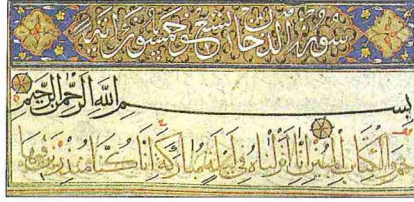 سورة الدخان تسع و خمسون آية
بسم الله الرحمن الرحيم
حم والكتاب المبين انا انزلناه في ليلة مباركة انا كنا منذرين فيها